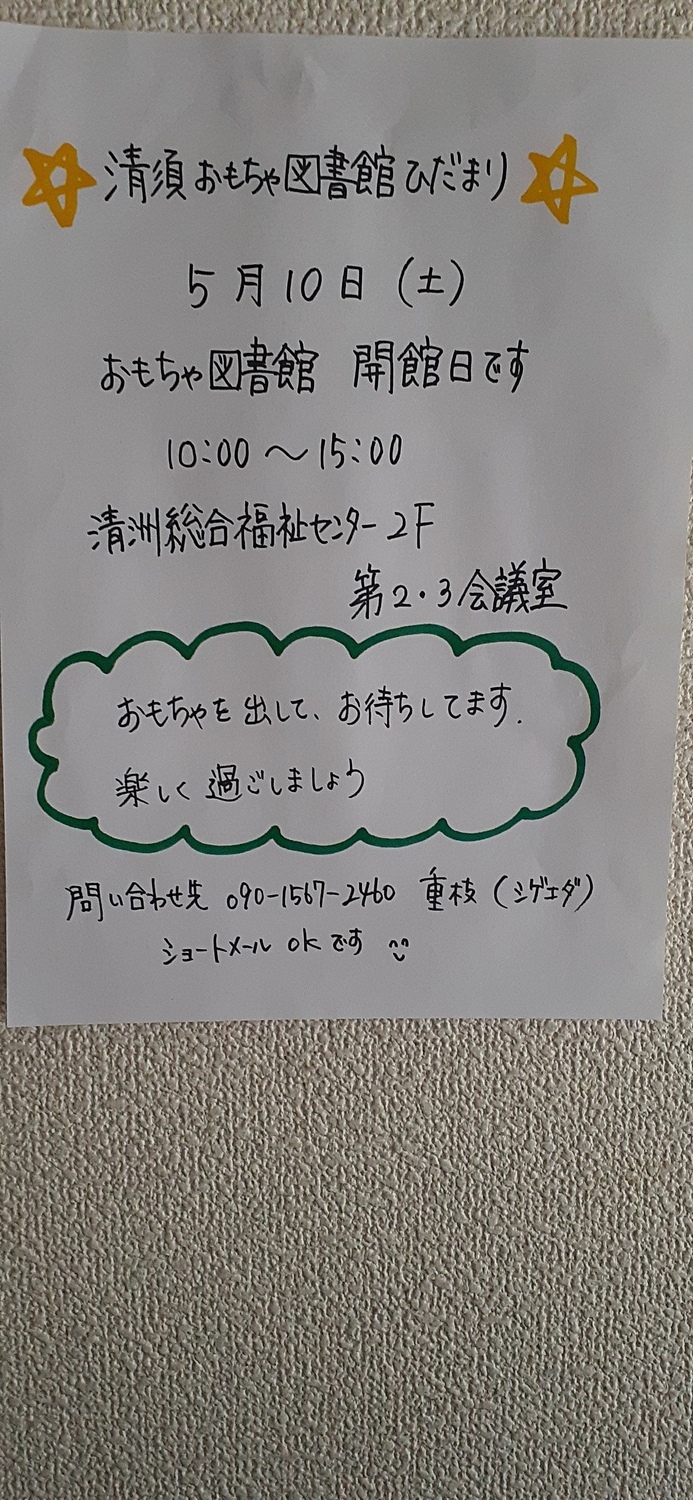 清須おもちゃ図書館ひだまり
5月10日(土)
おもちゃ図書館 開館日です
10:00〜15:00
清洲総合福祉センター2F
第2・3会議室
おもちゃを出して、お待ちしてます.
楽しく過ごしましょう
問い合わせ先 090-1567-2460 重枝(シゲエダ)
ショートメール OKです